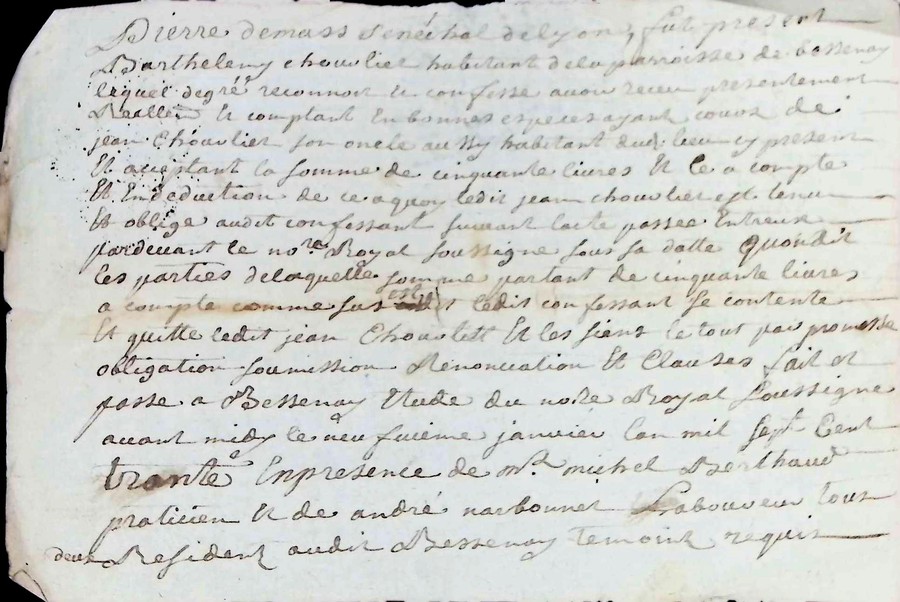 Pierre demass Senéchal delyon, fut present
Barthelemy chouvliet habitant delaparroisse de bessenay
lequel degré reconnoit et confesse avoir receu presentement
Reallem et comptant Enbonnes especes ayant cours de
jean Chouvliet son oncle aussy habitant dud lieu cy present
Et aceptant la somme de cinquante livres Et ce a compte
Et En deduction de ce aquoy ledit jean chouvliet est tenu
Et oblige audit confessant suivant lacte passee Entreux
pardevant le nore Royal soussigne sous sa datte quondit
les parties delaquelle somme partant de cinquante livres
a compte comme sus est dit ledit confessant se contente
Et quitte ledit jean Chouvliett Et les siens le tout par promesse
obligation soumission Renonciation Et Clauses fait et
passe a Bessenay Etude du nore Royal Soussigne
avant midy le neufvieme janvier lan mil sept Cent
trante Enpresence de mr michel Berthaud
praticien Et de andré narbonnet Laboureur tous
deux Resident audit Bessenay temoint requis